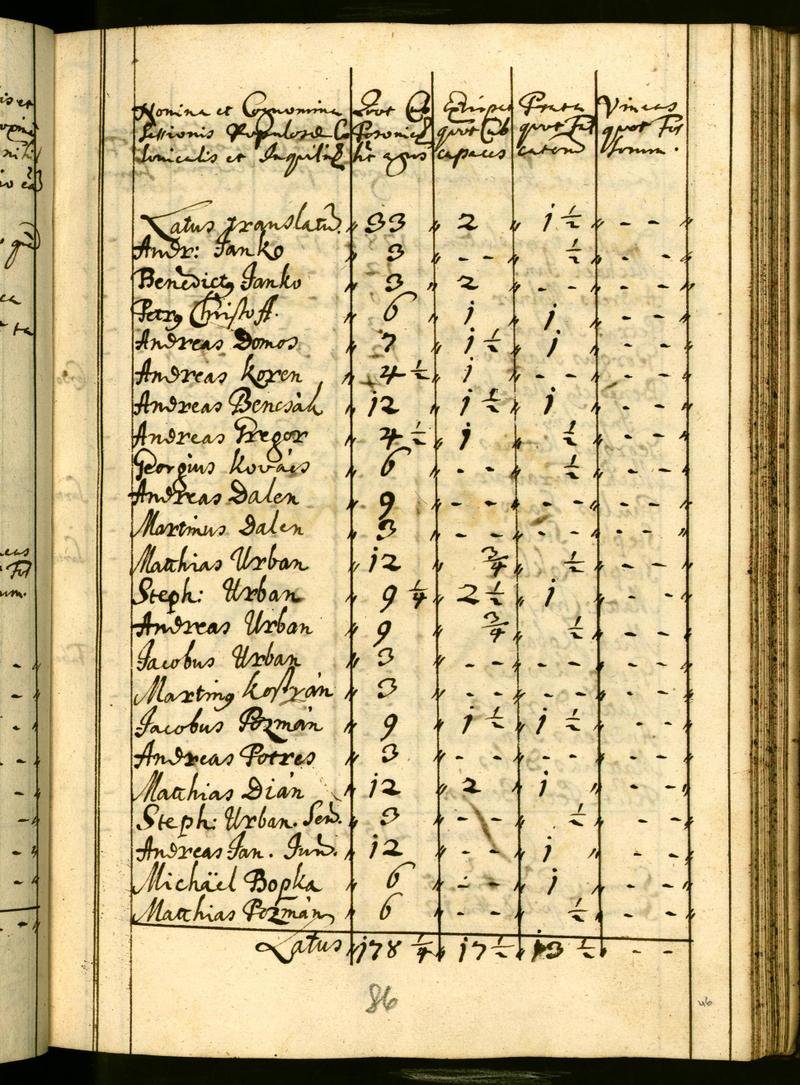 Nomina et Cognomina Quot Cub Extirpat Prata Vineas
Sessionis quot Cub quot Fal quot Fos
lonicalis et capaces catorũ sorum.
Latus translatũ. 33 2 1 1/2 - -
Andr: Janko 3 - - 1/2 - -
Benedictꝰ Janko 3 2 - - - -
Petrꝰ Christoff. 6 1 1 - -
Andreas Domos 7 1 1/2 1 - -
Andreas Koren 4 1/2 1 - - - -
Andreas Bencsák 12 1 1/2 1 - -
Andreas Gregor 4 1/2 1 1/2 - -
Georgius Kovács 6 - - 1/2 - -
Andreas Dalen 9 - - - - - -
Martinus Dalen 3 - - - - - -
Matthias Urban 12 3/4 1/2 - -
Steph: Urban 9 1/4 2 1/2 1 - -
Andreas Urban 9 3/4 1/2 - -
Jacobus Urban 3 - - - - - -
Martinꝰ Kostrán 3 - - - - - -
Jacobus Pozmán 9 1 1/2 1 1/2 - -
Andreas Potres 3 - - - - - -
Matthias Dián 12 2 1 - -
Steph: Urban. Sen. 3 - - 1/2 - -
Andreas Jan. Jun. 12 - - 1 - -
Michäel Bopka 6 - - 1 - -
Matthias Pozmán 6 - - 1/2 - -
Latus 178 1/4 17 1/2 13 1/2 - -
86
46